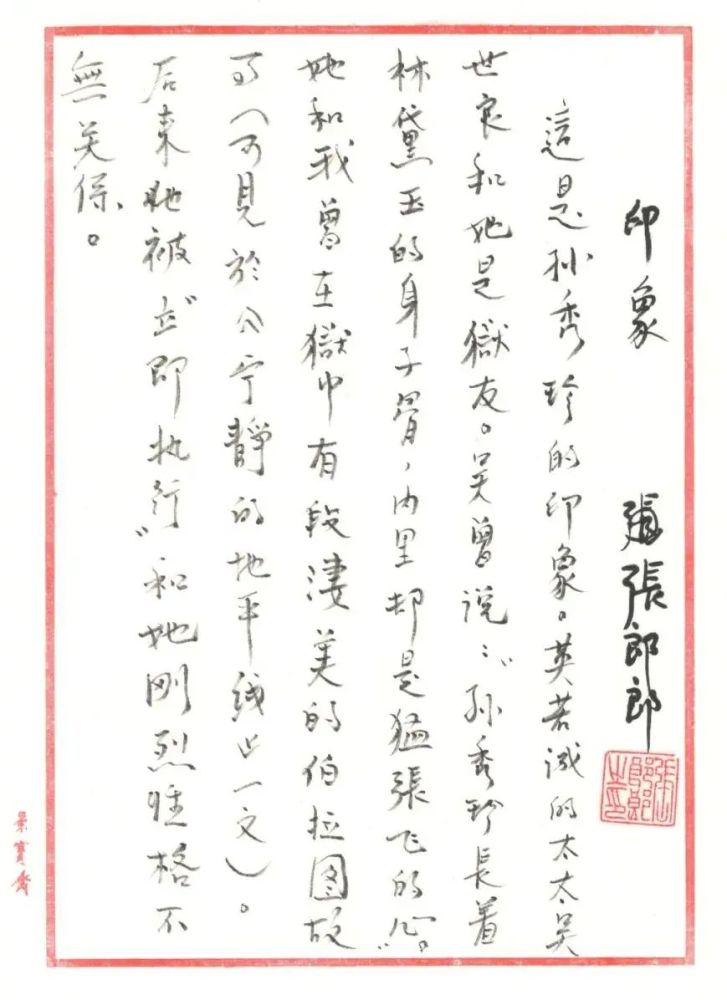 印象 張郎郎
這是孙秀珍的印象。英若诚的太太吴
世良和她是獄友。吴曾说：“孙秀珍長着
林黛玉的身子骨，内里却是猛張飞的心”。
她和我曾在獄中有段淒美的伯拉图故
事（可見於《宁静的地平线》一文）。
后来她被“立即执行”和她刚烈性格不
無关係。
張郎郎印
荣寶斋